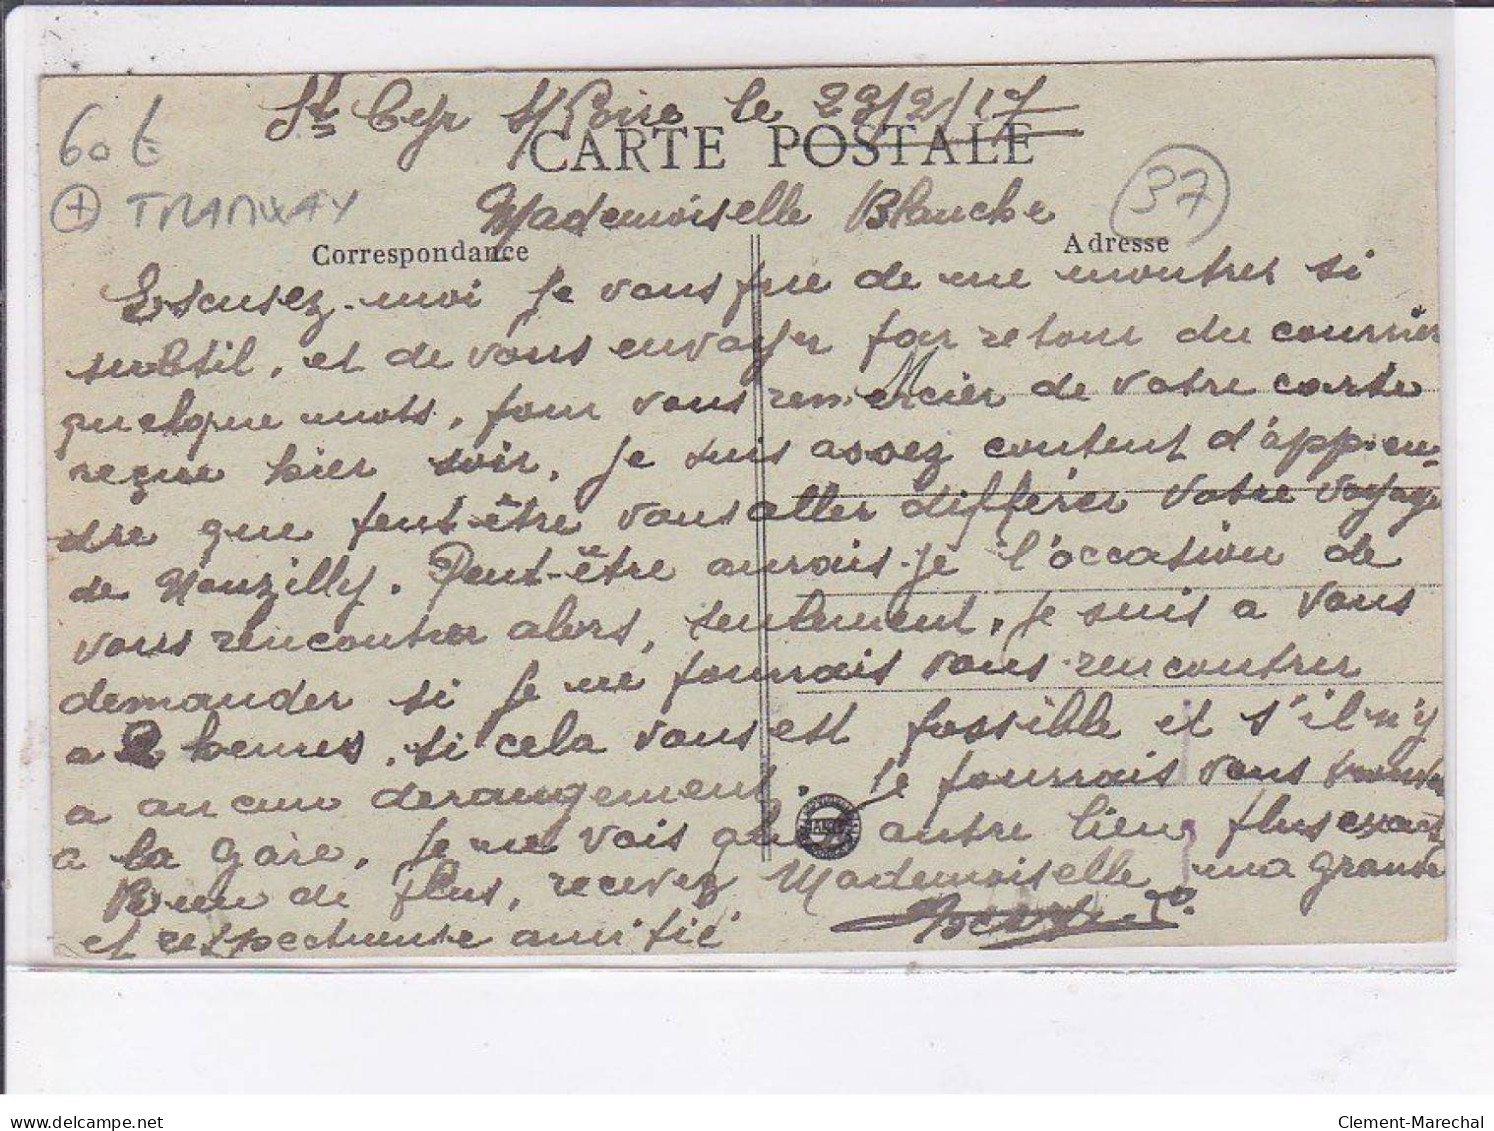 St Cyr s/Loire le 29/2/17
60 €
CARTE POSTALE
+ TRAMWAY
Mademoiselle Blanche
37
Correspondance
Adresse
Escusez-moi je vous prie de me montrer si
subtil, et de vous envoyer par retour du courrier
quelque mots, pour vous remercier de votre carte
reçue hier soir, je suis assez content d'appren-
dre que peut-être vous aller différer votre voyage
de Nouzilly. Peut-être aurais-je l'occasion de
vous rencontrer alors, seulement, je suis a vous
demander si je ne pourrais vous rencontrer
a 2 heures, si cela vous est possible et s'il n'y
a aucun derangement. Je pourrais vous
a la gare, je ne vois autre lieu plus
Rien de plus, recevez Mademoiselle ma grande
et respectueuse amitié
Clement-Marechal
delcampe.net